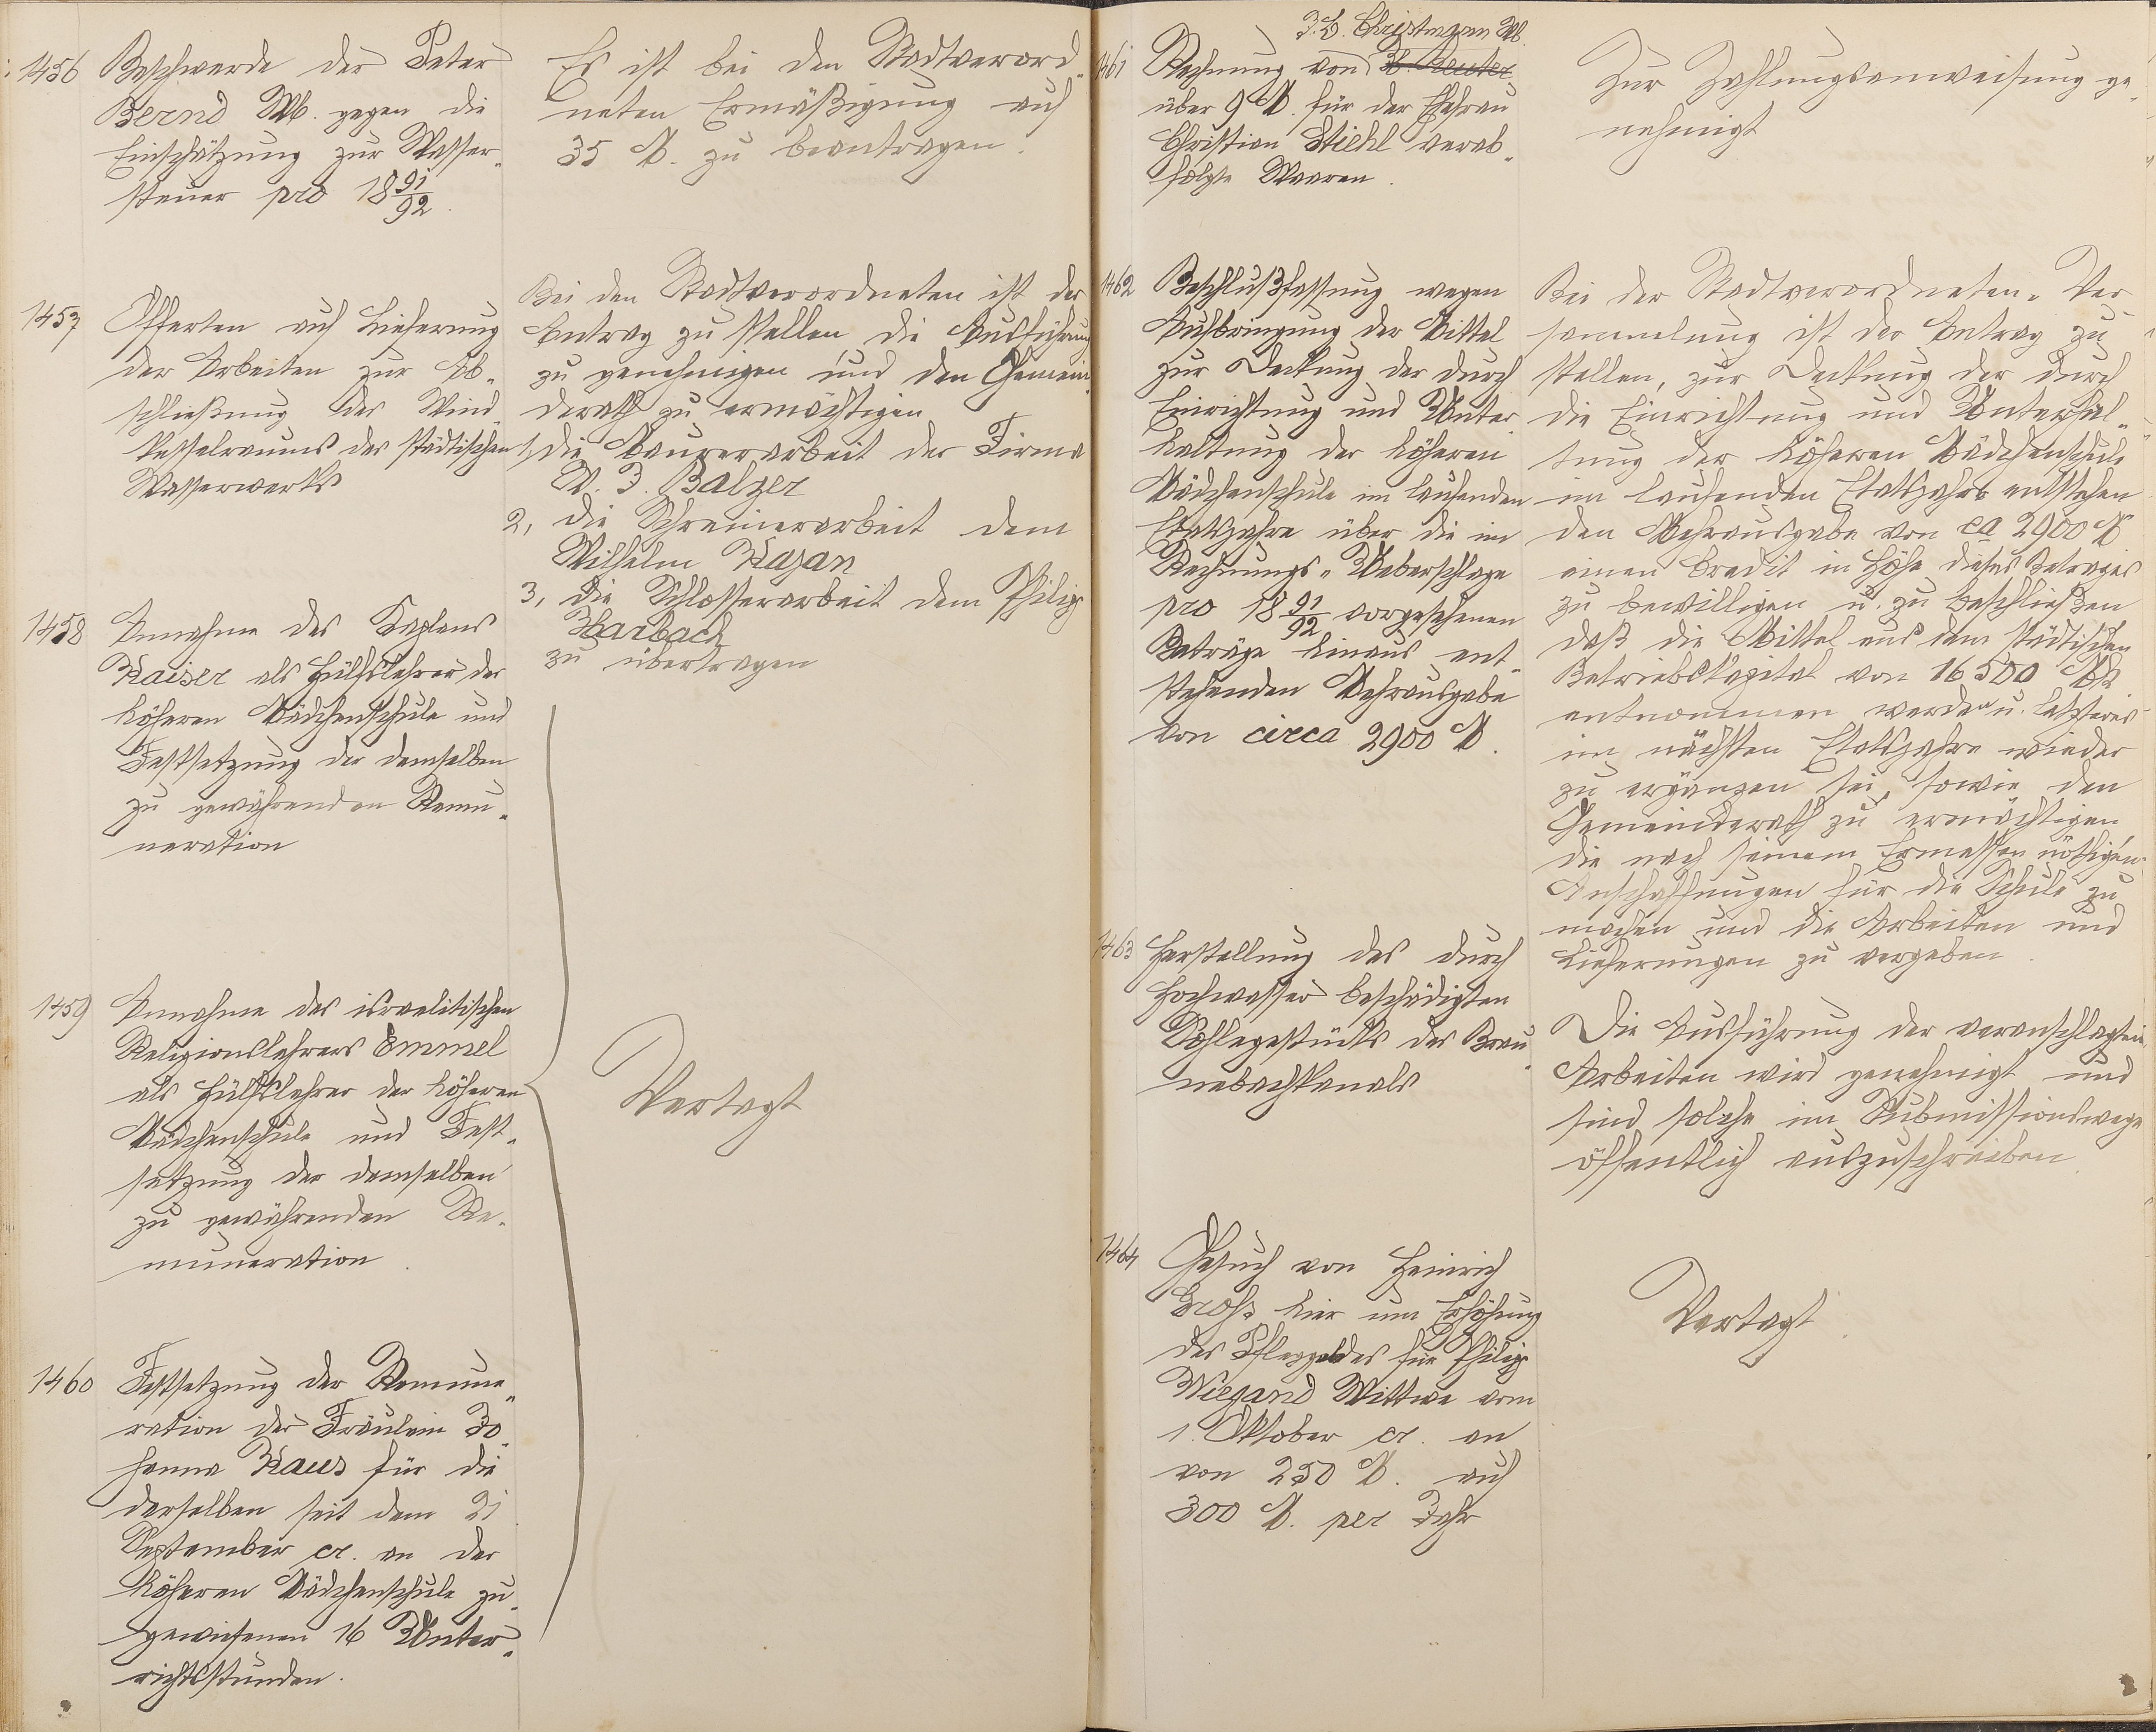 1456
Beschwerde der Peter
Bernd Wb. gegen die
Einschätzung zur Wasser-
steuer pro 18 91/92.
Es ist bei den Stadtverord-
neten Ermäßigung auf
35 M. zu beantragen.
1457
Offerten auf Lieferung
der Arbeiten zur Ab-
schließung des Wind-
kesselraums des städtischen
Wasserwerks
Bei den Stadtverordneten ist der
Antrag zu stellen die Ausführung
zu genehmigen und den Gemein-
derath zu ermächtigen
1, die Maurerarbeit der Firma
W. J. Balzer
2, die Schreinerarbeit dem
Wilhelm Kazan
3, die Schlosserarbeit dem Philipp
Harbach
zu übertragen
1458
Annahme des Kaplans
Kaiser als Hülfslehrer der
höheren Mädchenschule und
Festsetzung der demselben
zu gewährenden Remu-
neration
1459
Annahme des israelitischen
Religionslehrers Emmel
als Hülfslehrer der höheren
Mädchenschule und Fest-
setzung der demselben
zu gewährenden Re-
muneration.
Vertagt
1460
Festsetzung der Remune-
ration der Fräulein Jo-
hanna Kaus für die
derselben seit dem 21
September cr. an der
höheren Mädchenschule zu-
gewiesenen 16 Unter-
richtsstunden.
J. L. Christmann Wb.
1461
Rechnung von H. Reuter
über 9 M. für der Ehefrau
Christian Stiehl verab-
folgte Waaren.
Zur Zahlungsanweisung ge-
nehmigt
1462
Beschlußfassung wegen
Aufbringung der Mittel
zur Deckung der durch
Einrichtung und Unter-
haltung der höheren
Mädchenschule im laufenden
Etatsjahre über die im
Rechnungs-Ueberschlage
pro 18 91/92 vorgesehenen
Beträge hinaus ent-
stehenden Mehrausgabe
von circa 2900 M.
Bei der Stadtverordneten-Ver-
sammlung ist der Antrag zu
stellen, zur Deckung der durch
die Einrichtung und Unterhal-
tung der höheren Mädchenschule
im laufenden Etatsjahre entstehen
den Mehrausgabe von ca 2900 M
einen Credit in Höhe dieses Betrages
zu bewilligen u. zu beschließen
daß die Mittel aus dem städtischen
Betriebskapital von 16500 Mk
entnommen werden u. letzteres
im nächsten Etatsjahre wieder
zu ergänzen sei, sowie den
Gemeinderath zu ermächtigen
die nach seinem Ermessen nöthigen
Anschaffungen für die Schule zu
machen und die Arbeiten und
Lieferungen zu vergeben.
1463
Herstellung des durch
Hochwasser beschädigten
Sohlegestücks des Brau-
nebachkanals
Die Ausführung der veranschlagten
Arbeiten wird genehmigt und
sind solche im Submissionswege
öffentlich auszuschreiben.
1464
Gesuch von Heinrich
Groß hier um Erhöhung
des Pflegegeldes für Philipp
Wiegand Wittwe vom
1. Oktober cr. an
von 250 M. auf
300 M. per Jahr
Vertagt.